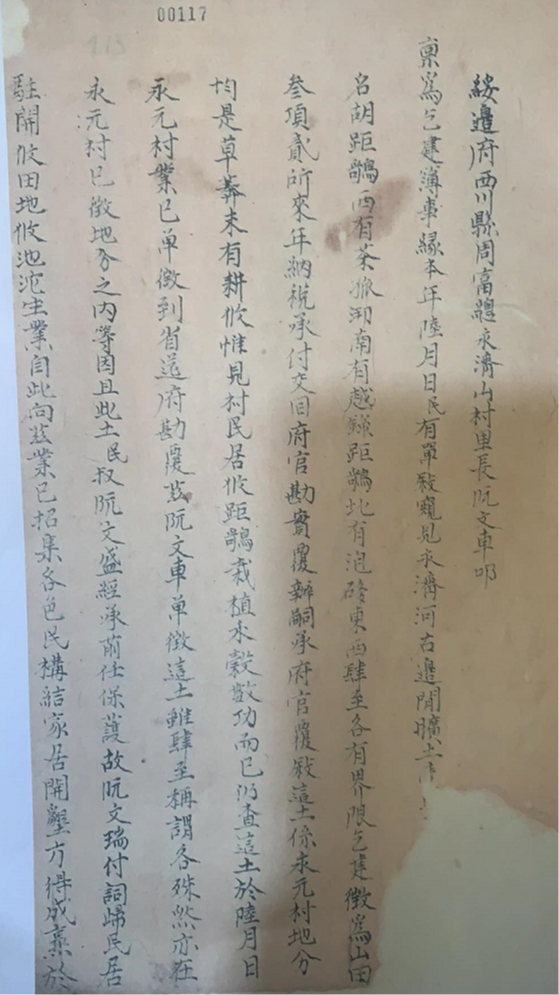 00117
綏邊府西川縣周富總永濟山村里長阮文車叩
稟爲乞建簿事緣本年陸月日民有單啟窺見永濟河右邊閒曠土
名胡距鶺西有茶派泖南有越䥥距鶺北有泡䃟東西肆至各有界限乞建徵爲山田
叁項貳所來年納稅承付交回府官勘實覆辦嗣承府官覆啟這土係永元村地分
均是草莽未有耕攸惟見村民居攸距鶺栽植木穀數功而已仍查這土於陸月日
永元村業已单徵到省送府勘覆茲阮文車单徵這土雖肆至稱謂各殊然亦在
永元村已徵地分之内等因且此土民叔阮文盛經承前任保護故阮文瑞付詞歸民居
駐開攸田地攸池沱生業自此向茲業已招集各色民構結家居開墾方得成熹於